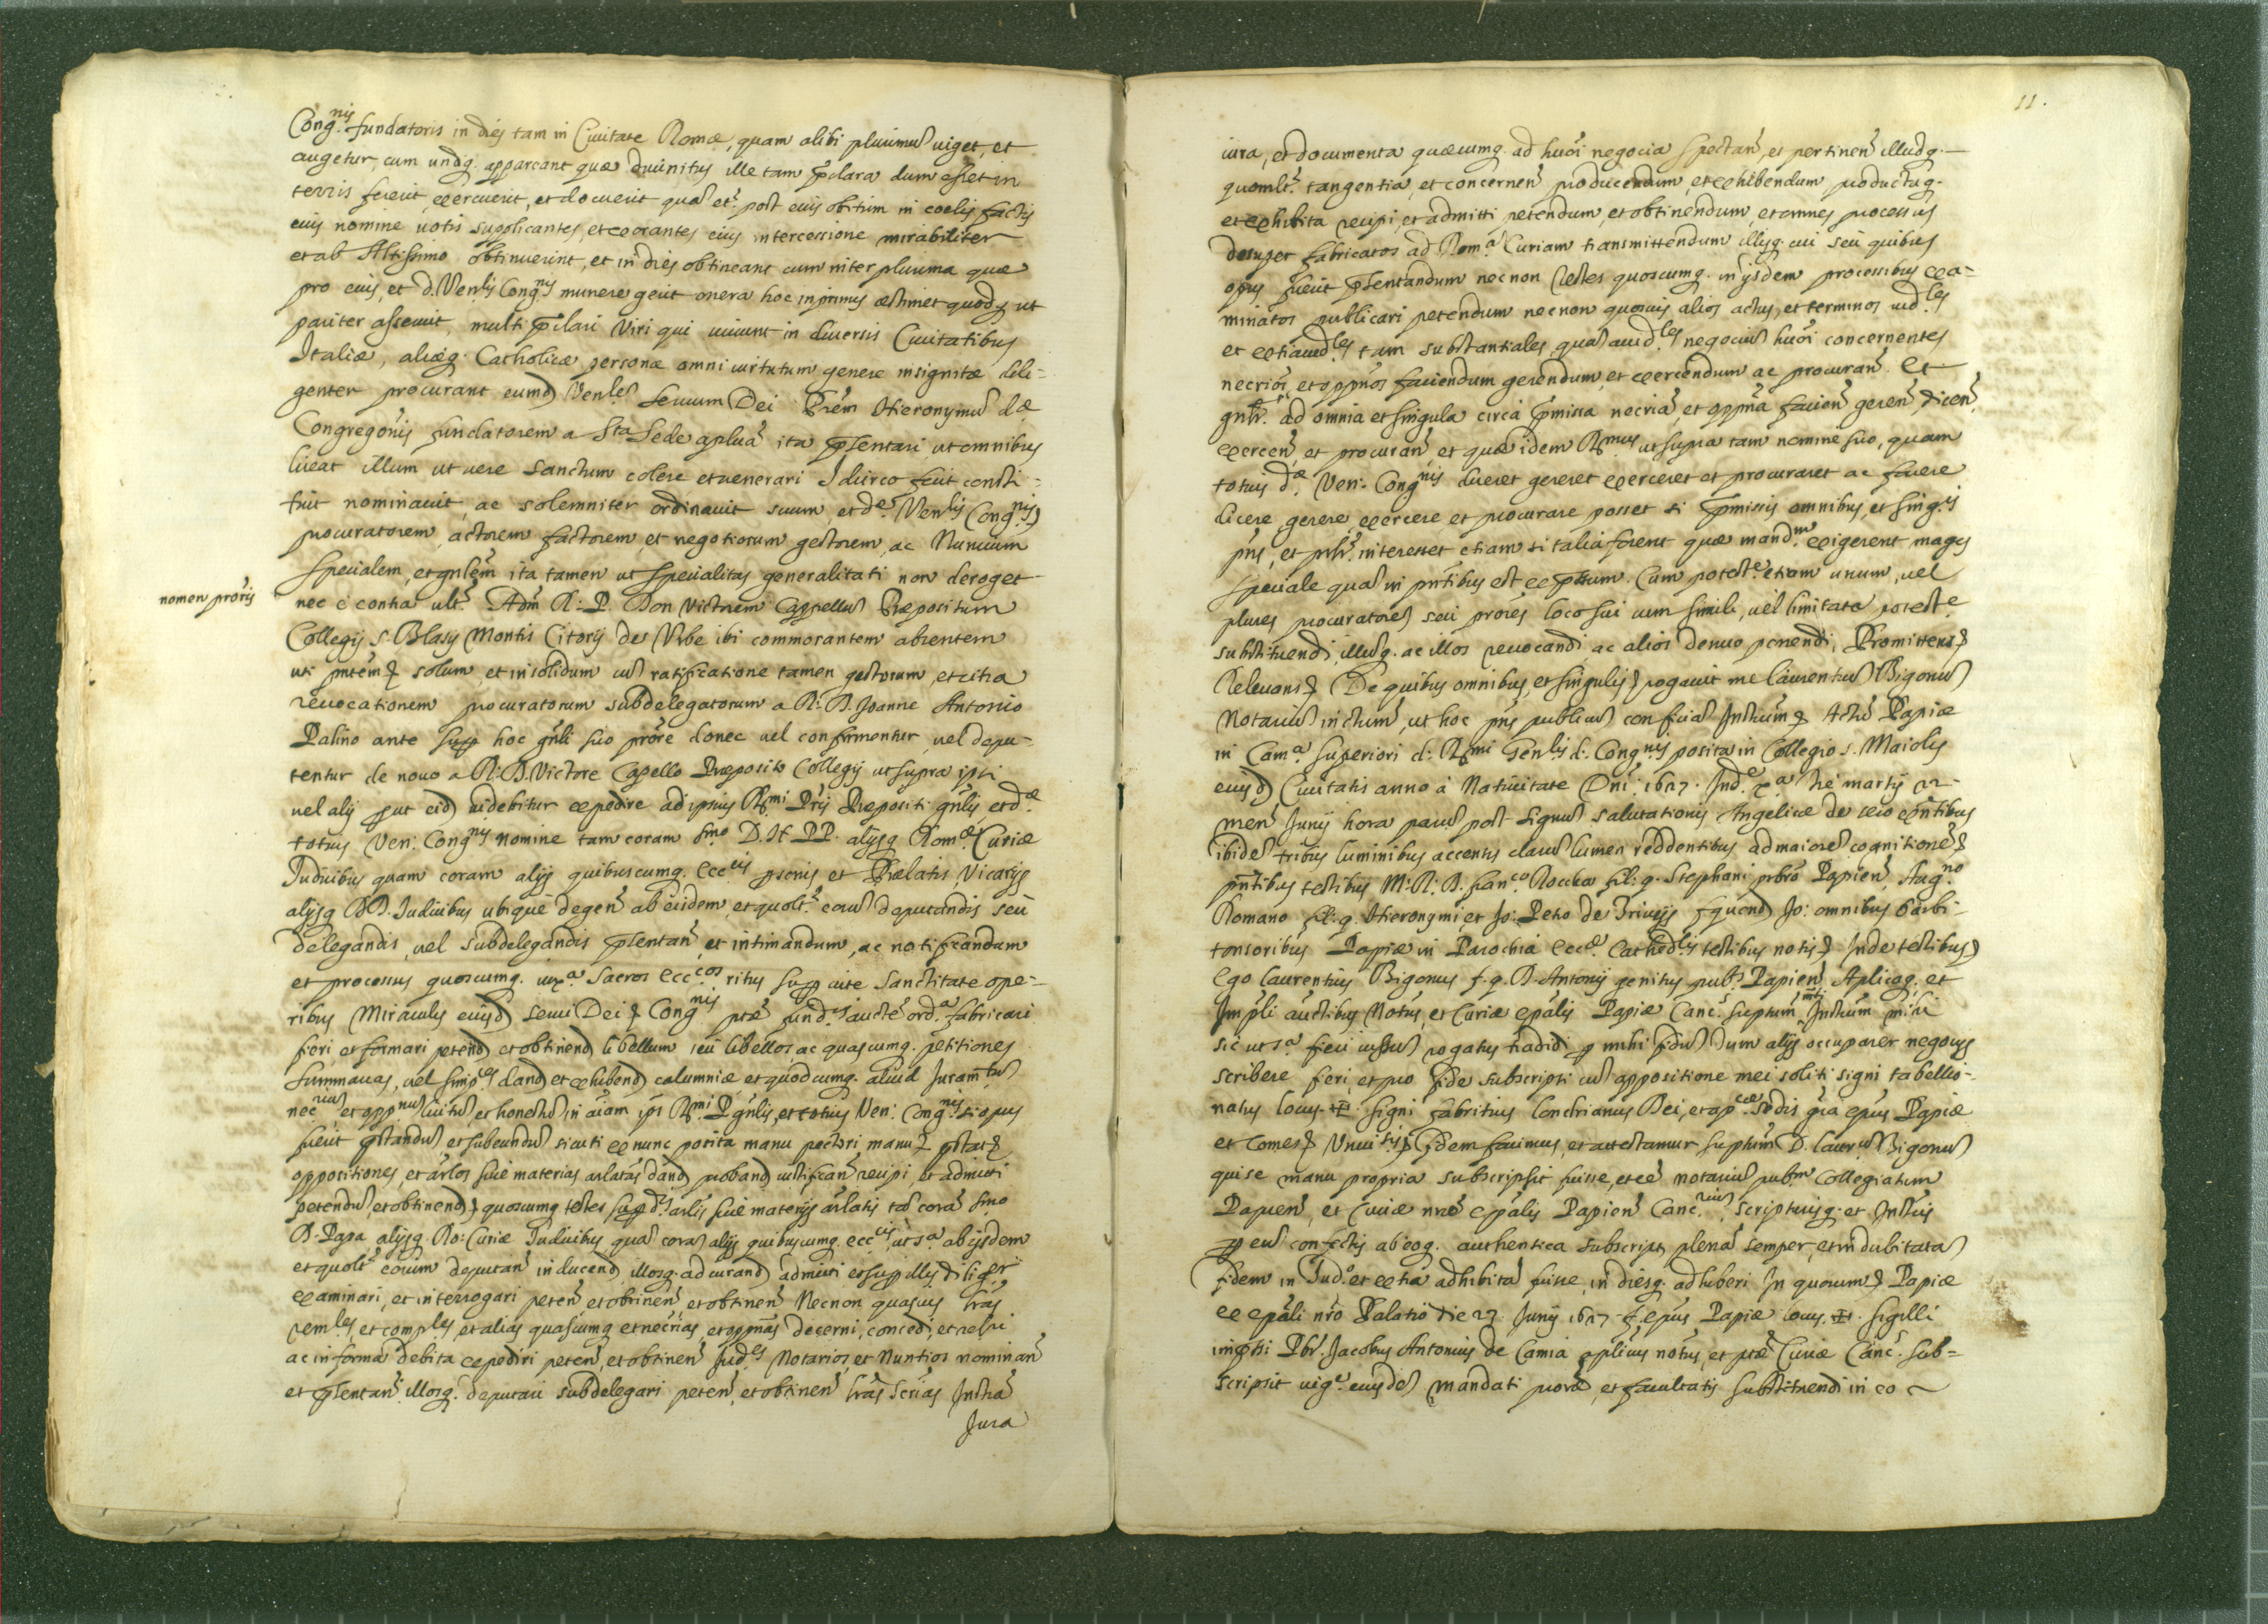 Cong.nis fundatoris in dies tam in Ciuitate Romæ, quam alibi plurimũ uiget, et
augetur, cum undq. appareant quæ diuinitus ille tam p̃clara dum esset in
terris fecerit, exercuerit, et docuerit quã et.̃ post eius obitum in coelis factis
eius nomine uotis supplicantes, et exorantes eius intercessione mirabiliter
et ab Altissimo obtinuerint, et in dies obtineant cum inter plurima quæ
pro eius, et d. Ven.lis Cong.nis munere gerit onera hoc in primis æstimet quodq ut
pariter asseruit, multi p̃clari Viri qui uiuunt in diuersis Ciuitatibus
Italiæ, aliæq. Catholicæ personæ omni uirtutum genere insignitæ dili=
genter procurant eumd Ven.lẽ Seruum Dei P̃rẽm Hieronymũ dæ
Congregõnis fundatorem a Sta Sede aplicã ita p̃sentari, ut omnibus
liceat illum ut uere Sanctum colere et uenerari Idcirco fecit consti=
tuit nominauit, ac solemniter ordinauit suum et de. Ven.lis Cong.nis
procuratorem, actorem factorem, et negotiorum gestorem, ac Nuncium
specialem, et gñlẽm ita tamen ut specialitas generalitati non deroget
nomen prõris
nec è contra ult.̃ Adm̃ R: P. Don Victorem Cappellũ Præpositum
Collegij S. Blasij Montis Citorij de Vrbe ibi commorantem absentem
uti pñtẽm solum, et in solidum cũ ratificatione tamen gestorum, et citra
reuocationem procuratorum subdelegatorum a R: D. Joanne Antonio
Palino ante hoc gñli suo prõre donec uel confirmentur uel depu-
tentur de nouo a R: D. Victore Capello Præposito Collegij ut supra ipsi
uel alij put eid uidebitur expedire ad ipsius R.mi P̃ris Præpositi gñlis, et dæ
totius Ven: Cong.nis nomine tam coram S.mo D. N. PP. alijsq Rom.æ Curiæ
Iudicibus quam coram alijs quibuscumq. Ecc.cis psonis et Prælatis Vicarijs
alijsq DD. Iudicibus ubique degeñ ab eisdem, et quolt.̃ eorũ deputandis seu
delegandis, uel subdelegandis p̃sentañ, et intimandum, ac notificandum
et processus quoscumq. iux.a Sacros Ecc.cos ritus sup uitæ Sanctitate ope=
ribus Miraculis eiusd Serui Dei Cong.nis ptæ fund.ris aucte ord.a fabricari
fieri et formari petend et obtinend libellum seu libellos ac quascumq. petitiones
summarias, uel simp.es dand et exhibend calumniæ et quodcumq. aliud Juram.tũ
nec.riũ et opp.nũ licitũ, et honestũ in aĩam ipĩ R.mi P gñlis, et totius Ven: Cong.nis si opus
fuerit pstandũ et subeundũ sicuti ex nunc posita manu pectori manu pstat
oppositiones, et arlos siue materias arlatas dand proband iustificañ recipi, et admitti
petendũ, et obtinend quoscumq testes sup d.is arlis siue materijs arlatis tã corã S.mo
D. Papa alijsq. Ro: Curiæ Iudicibus quã corã alijs quibuscumq. ecc.cis ut s.a ab ijsdem
et quolt.̃ eorum deputañ inducend, illosq. ad iurand admitti et sup illis dilig.er
examinari, et interrogari peteñ et obtineñ et obtineñ Necnon quascũ lrãs
rem.les, et comp.les, et alias quascumq et necrĩas, et oppñas decerni, concedi, et relaxi
ac in forma debita expediri peteñ, et obtineñ Jud.es Notarios, et Nuntios nominañ
et p̃sentañ illosq. deputari subdelegari peteñ, et obtineñ lrãs Scrĩas Instrã
Jura
11.
iura, et documenta quæcumq. ad huõi negocia spectañ, et pertineñ illudq.
quomlt.̃ tangentia, et concerneñ producendum, et exhibendum productaq.
et exhibita recipi, et admitti petendum, et obtinendum, et omnes processus
desuper fabricatos ad Rom.ã Curiam transmittendum illisq. cui seu quibus
opus fuerit p̃sentandum necnon testes quoscumq. in ijsdem processibus exa=
minatos publicari petendum necnon quosuis alios actus, et terminos iud.les
et extraiud.les tam substantiales quã accid.les negociũ huõi concernentes
necrios, et oppños faciendum gerendum, et exercendum ac procurañ. Et
gñlr̃. ad omnia et singula circa p̃missa necriã, et oppñã facieñ gereñ, diceñ,
exerceñ, et procurañ et quæ idem R.mus ut supra tam nomine suo, quam
totius dæ. Ven: Cong.nis diceret gereret exerceret et procuraret ac facere
dicere, gerere, exercere et procurare posset si p̃missis omnibus, et sing.is
pñs, et pñlr̃. interesset etiam si talia forent quæ mand.m exigerent magis
speciale quã in pñtibus est expssum. Cum potest.e etiam unum, uel
plures procuratores seu prores loco sui cum simili, uel limitata potest.e
substituendi, illusq. ac illos reuocandi ac alios denuo ponendi, Promittens
Releuans De quibus omnibus, et singulis rogauit me Laurentiũ Bigonũ
Notariũ infrum̃, ut hoc pñs publicũ conficiã Instrum̃ Actũ Papiæ
in Cam.a superiori d: R.mi Gen.lis d: Cong.nis posita in Collegio S. Maioli
eiusd Ciuitatis anno à Natiuitate Dñi 1627. Ind.e x.a Die martij 22
meñ Junij hora parũ post signũ salutationis Angelicæ de sero
ibidẽ tribus luminibus accensis clarũ lumen reddentibus ad maiorẽ cognitionẽ
pñtibus testibus M: R: D. Fran.co Rocca fil: q. Stephani pbrõ Papieñ, Aug.no
Romano fil: q. Hieronymi, et Jo: Petro de Triuijs f quond Jo: omnibus barbi-
tonsoribus Papiæ in Parochia Ecc.æ Cathed.lis testibus notis Inde testibus
Ego Laurentius Bigonus f. q. D. Antonij genitus pub.s Papieñ Aplicaq. et
Impli auctibus Notus, et Curiæ epãlis Papiæ Canc.s suptum Instrum̃ mihi
sic ut s.a fieri iussũ rogatus tradidi p mihi fidũ dum alijs occuparer negocijs
scribere feci, et pro fide subscripsi cũ appositione mei soliti signi tabellio-
natus Locus + signi Fabritius Londrianus Dei, et ap.cæ sedis grã epũs Papiæ
et Comes Vniuis fidem facimus, et attestamur suptum D. Laur.ũ Bigonũ
qui se manu propria subscripsit fuisse, et eẽ notariũ pub.m Collegiatum
Papieñ, et Curiæ nræ epãlis Papieñ Canc.riũ, scripturisq. et Instris
p eũ confectis ab eoq. authentica subscript, plenã semper, et indubitatã
fidem in Jud.o et extra adhibitã fuisse, in diesq. adhiberi In quorum Papiæ
ex epãli nrõ Palatio die 23 Junij 1627 F. epũs Papiæ locus + sigilli
imp̃ssi Pbr̃. Jacobus Antonius de Camia aplicus notus, et ptæ Curiæ Canc.s sub=
scripsit uig.e eiusdẽ mandati proræ, et facultatis substituendi in eo